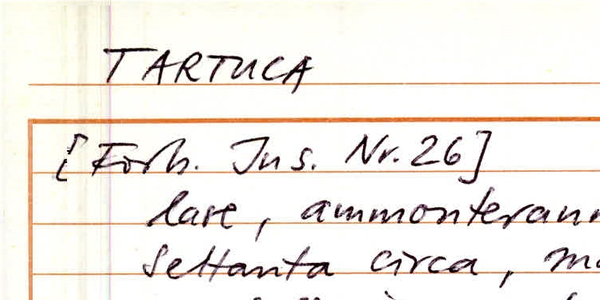 TARTUCA
[Forb. Ins. Nr. 26]
lare, ammonterann
settanta circa, ma